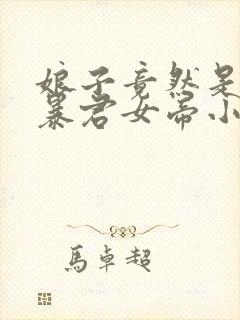 娘子竟然是
暴君女帝小
馬卓超